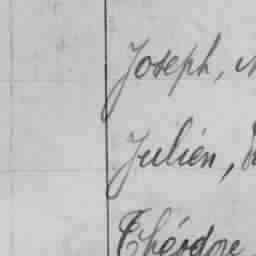 Joseph,
Julien,
Théodore